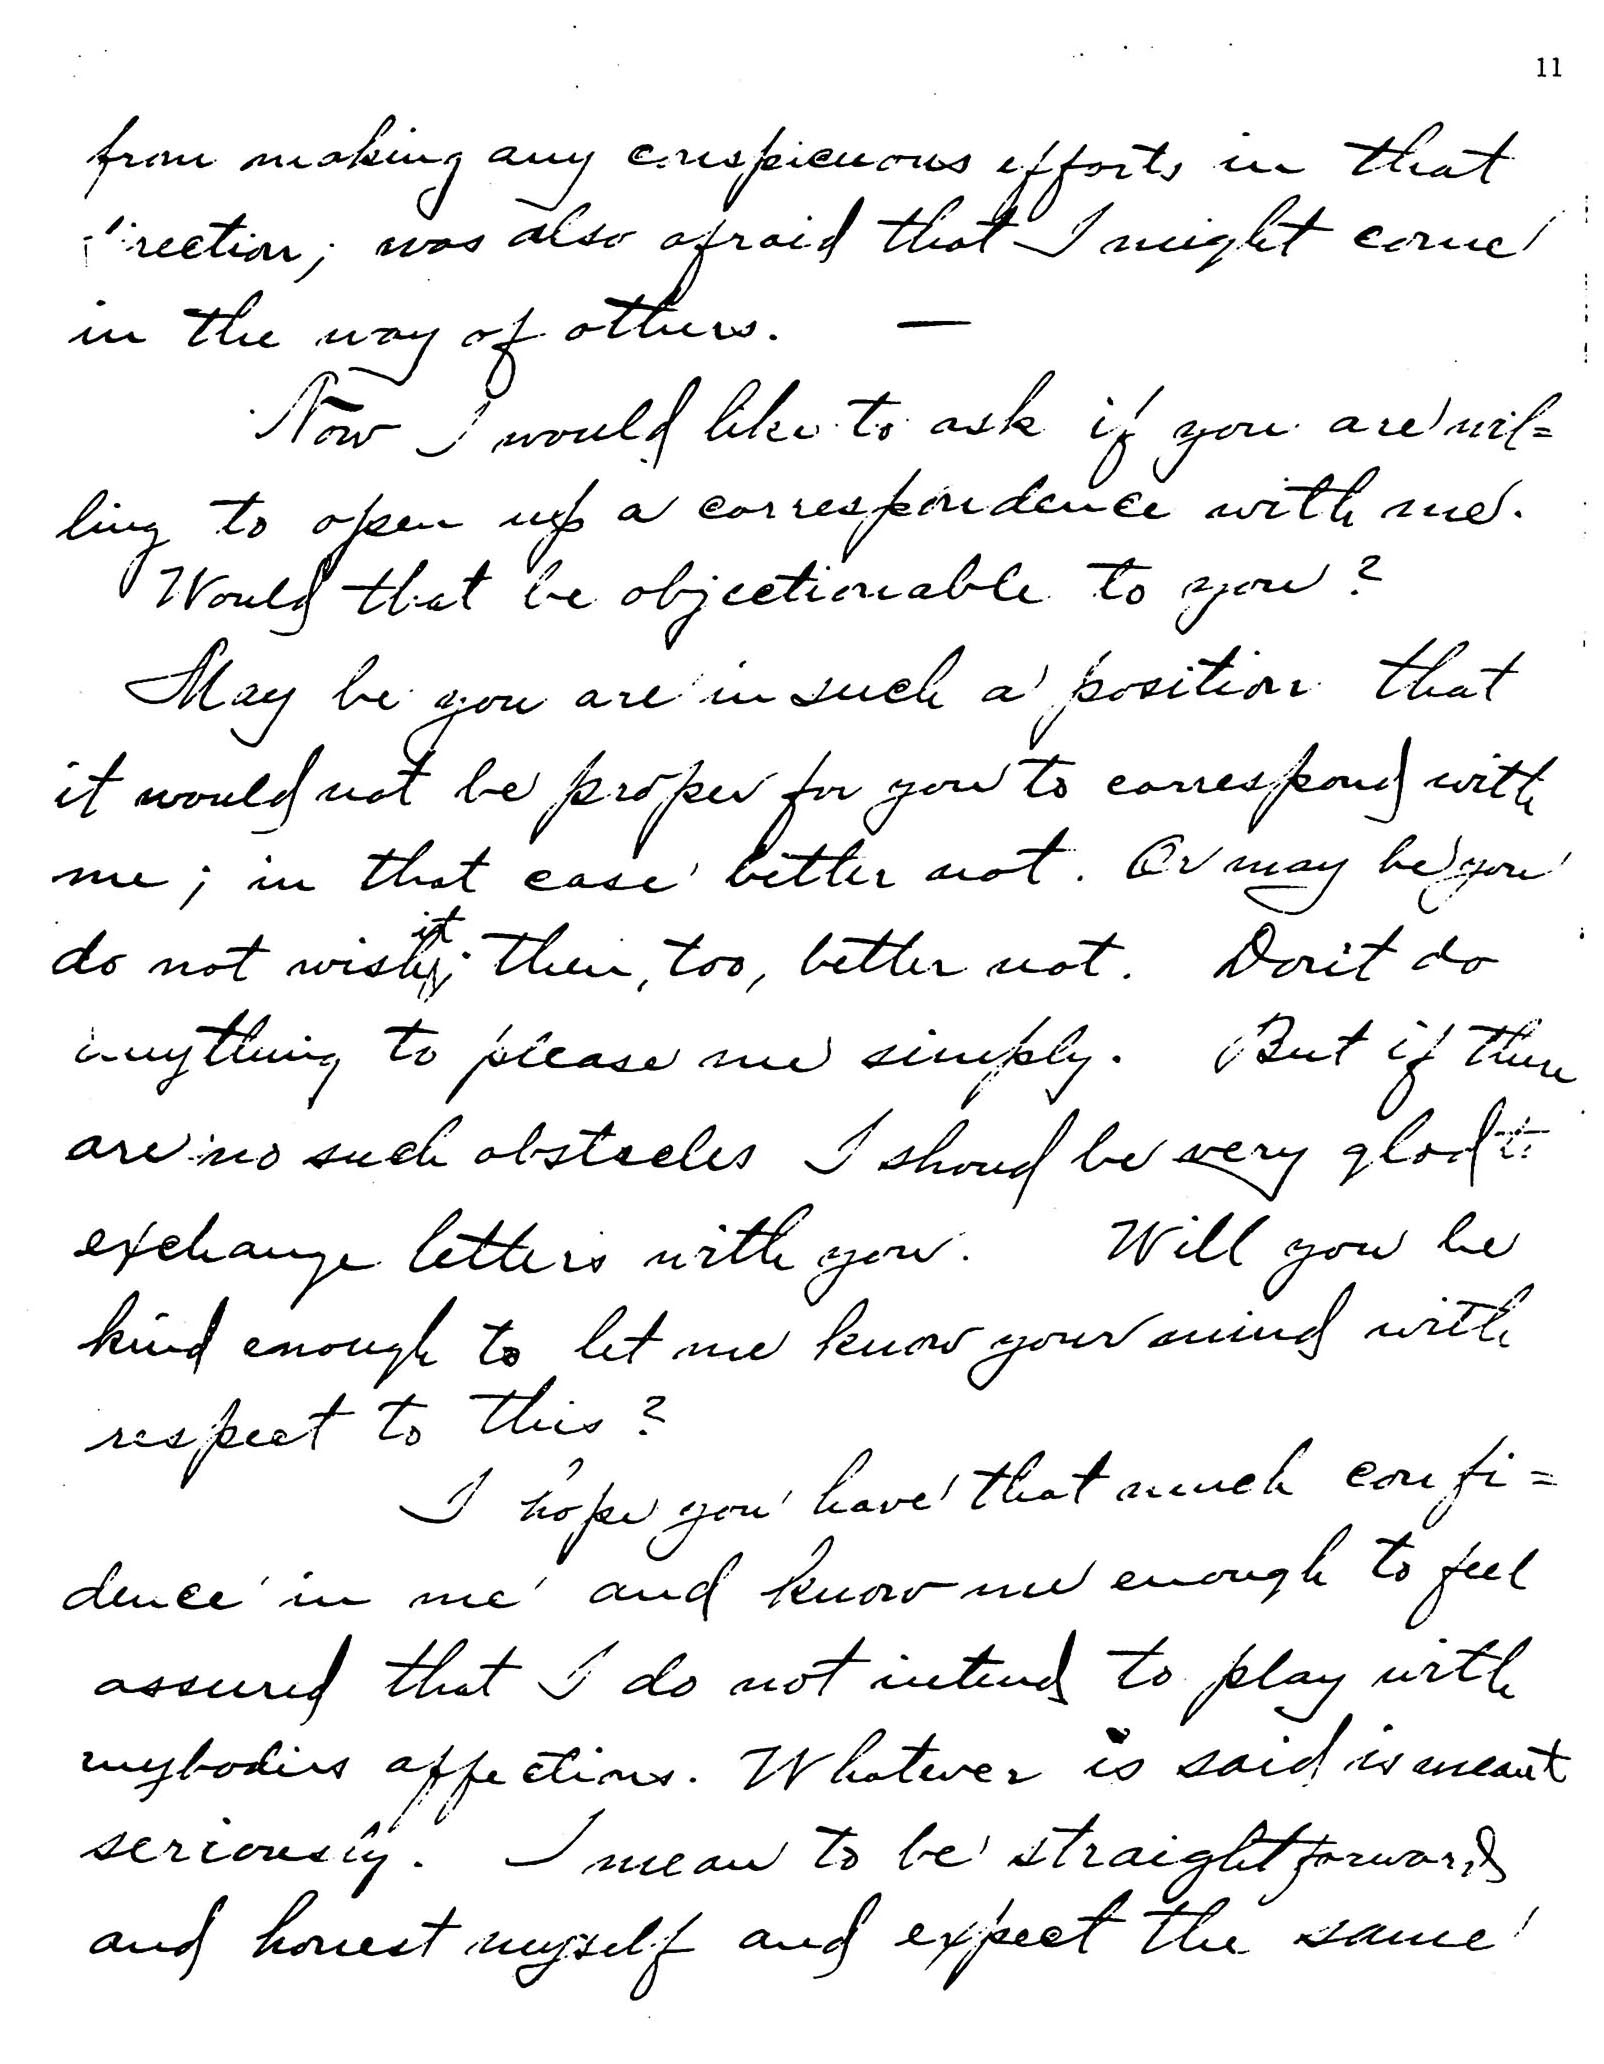 11
from making any conspicuous efforts in that
direction; was also afraid that I might come
in the way of others. —
Now I would like to ask if you are wil=
ling to open up a correspondence with me.
Would that be objectionable to you?
May be you are in such a position that
it would not be proper for you to correspond with
me; in that case better not. Or may be you
do not wish it; then, too, better not. Don't do
anything to please me simply. But if there
are no such obstacles I shoud be very glad to
exchange letters with you. Will you be
kind enough to let me know your mind with
respect to this?
I hope you have that much confi=
dence in me and know me enough to feel
assured that I do not intend to play with
anybodies affections. Whatever is said is meant
seriously. I mean to be straightforward
and honest myself and expect the same